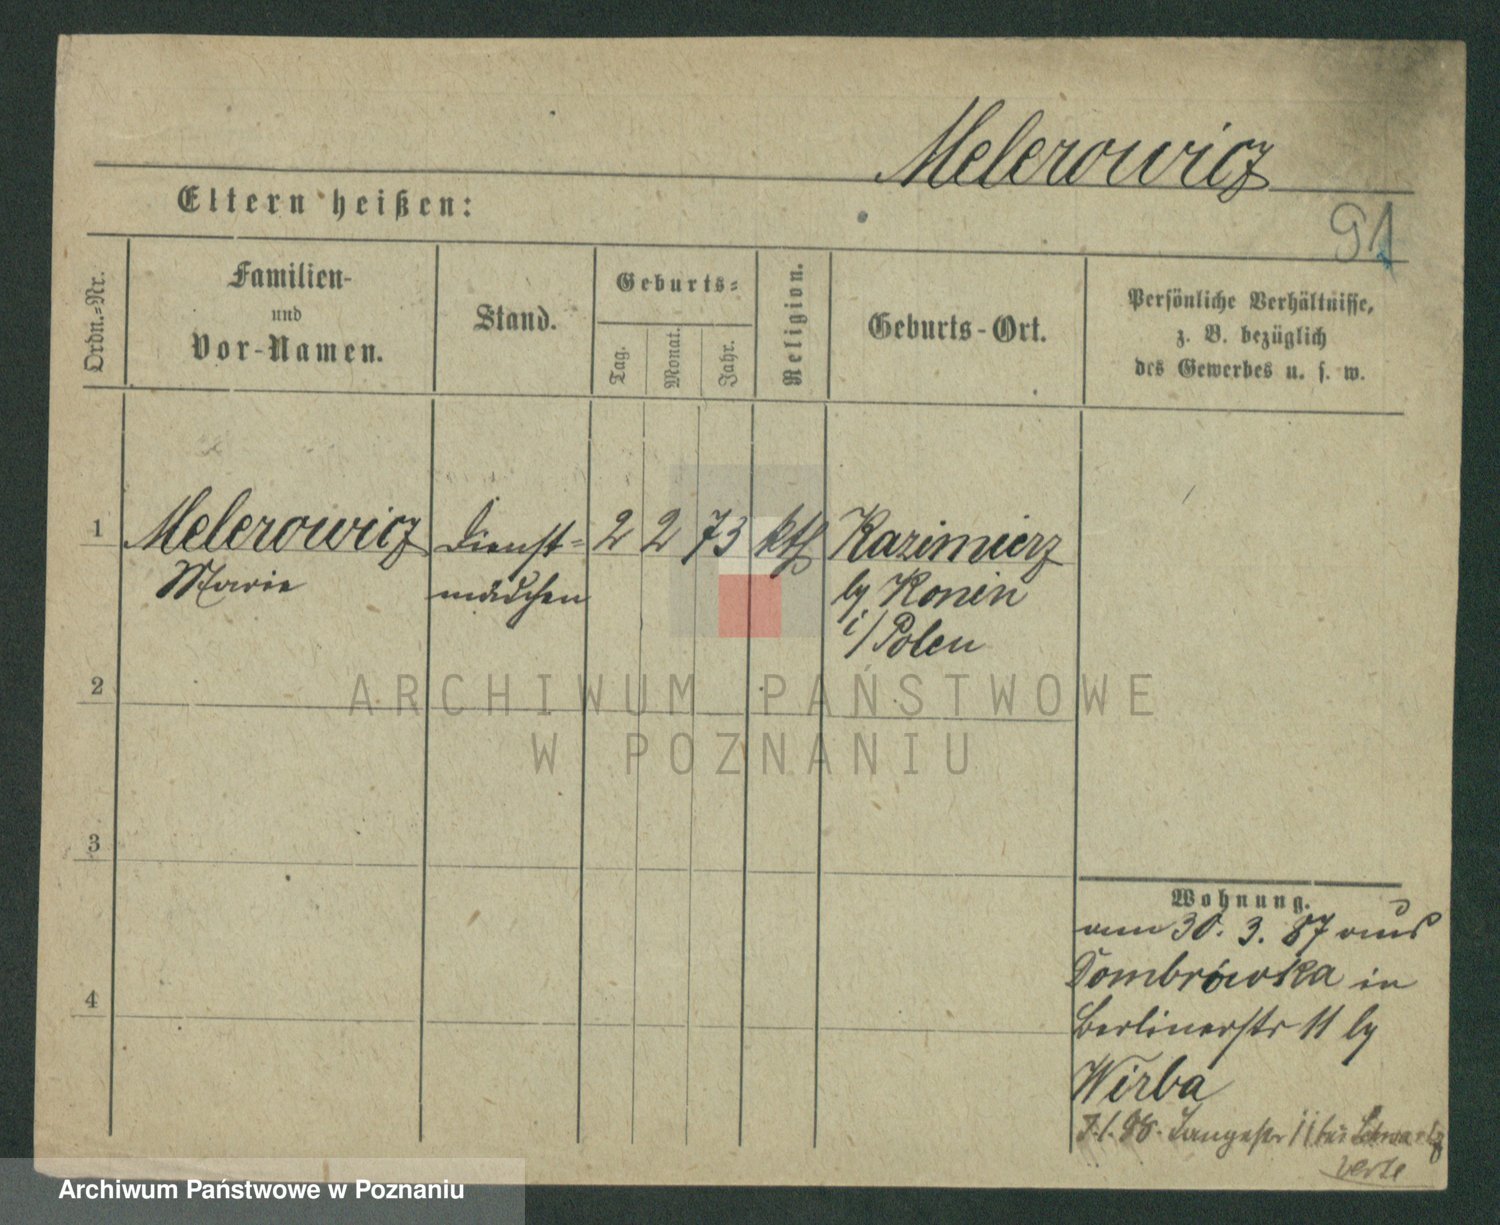 Melerowicz
Eltern heißen:
91
Ordn.-Nr.
Familien-
und
Vor-Namen.
Stand.
Geburts-
Tag.
Monat.
Jahr.
Religion.
Geburts-Ort.
Persönliche Verhältnisse,
z. B. bezüglich
des Gewerbes u. s. w.
1 Melerowicz Dienst- 2 2 73 kth Kazimierz
Marie mädchen by Konin
i/Polen
2
ARCHIWUM PAŃSTWOWE
W POZNANIU
3
Wohnung.
am 30. 3. 87 aus
Dombrówka in
4
Berlinerstr 11 by
Wirba
7.1.98. Langestr 11 bei
verte
Archiwum Państwowe w Poznaniu